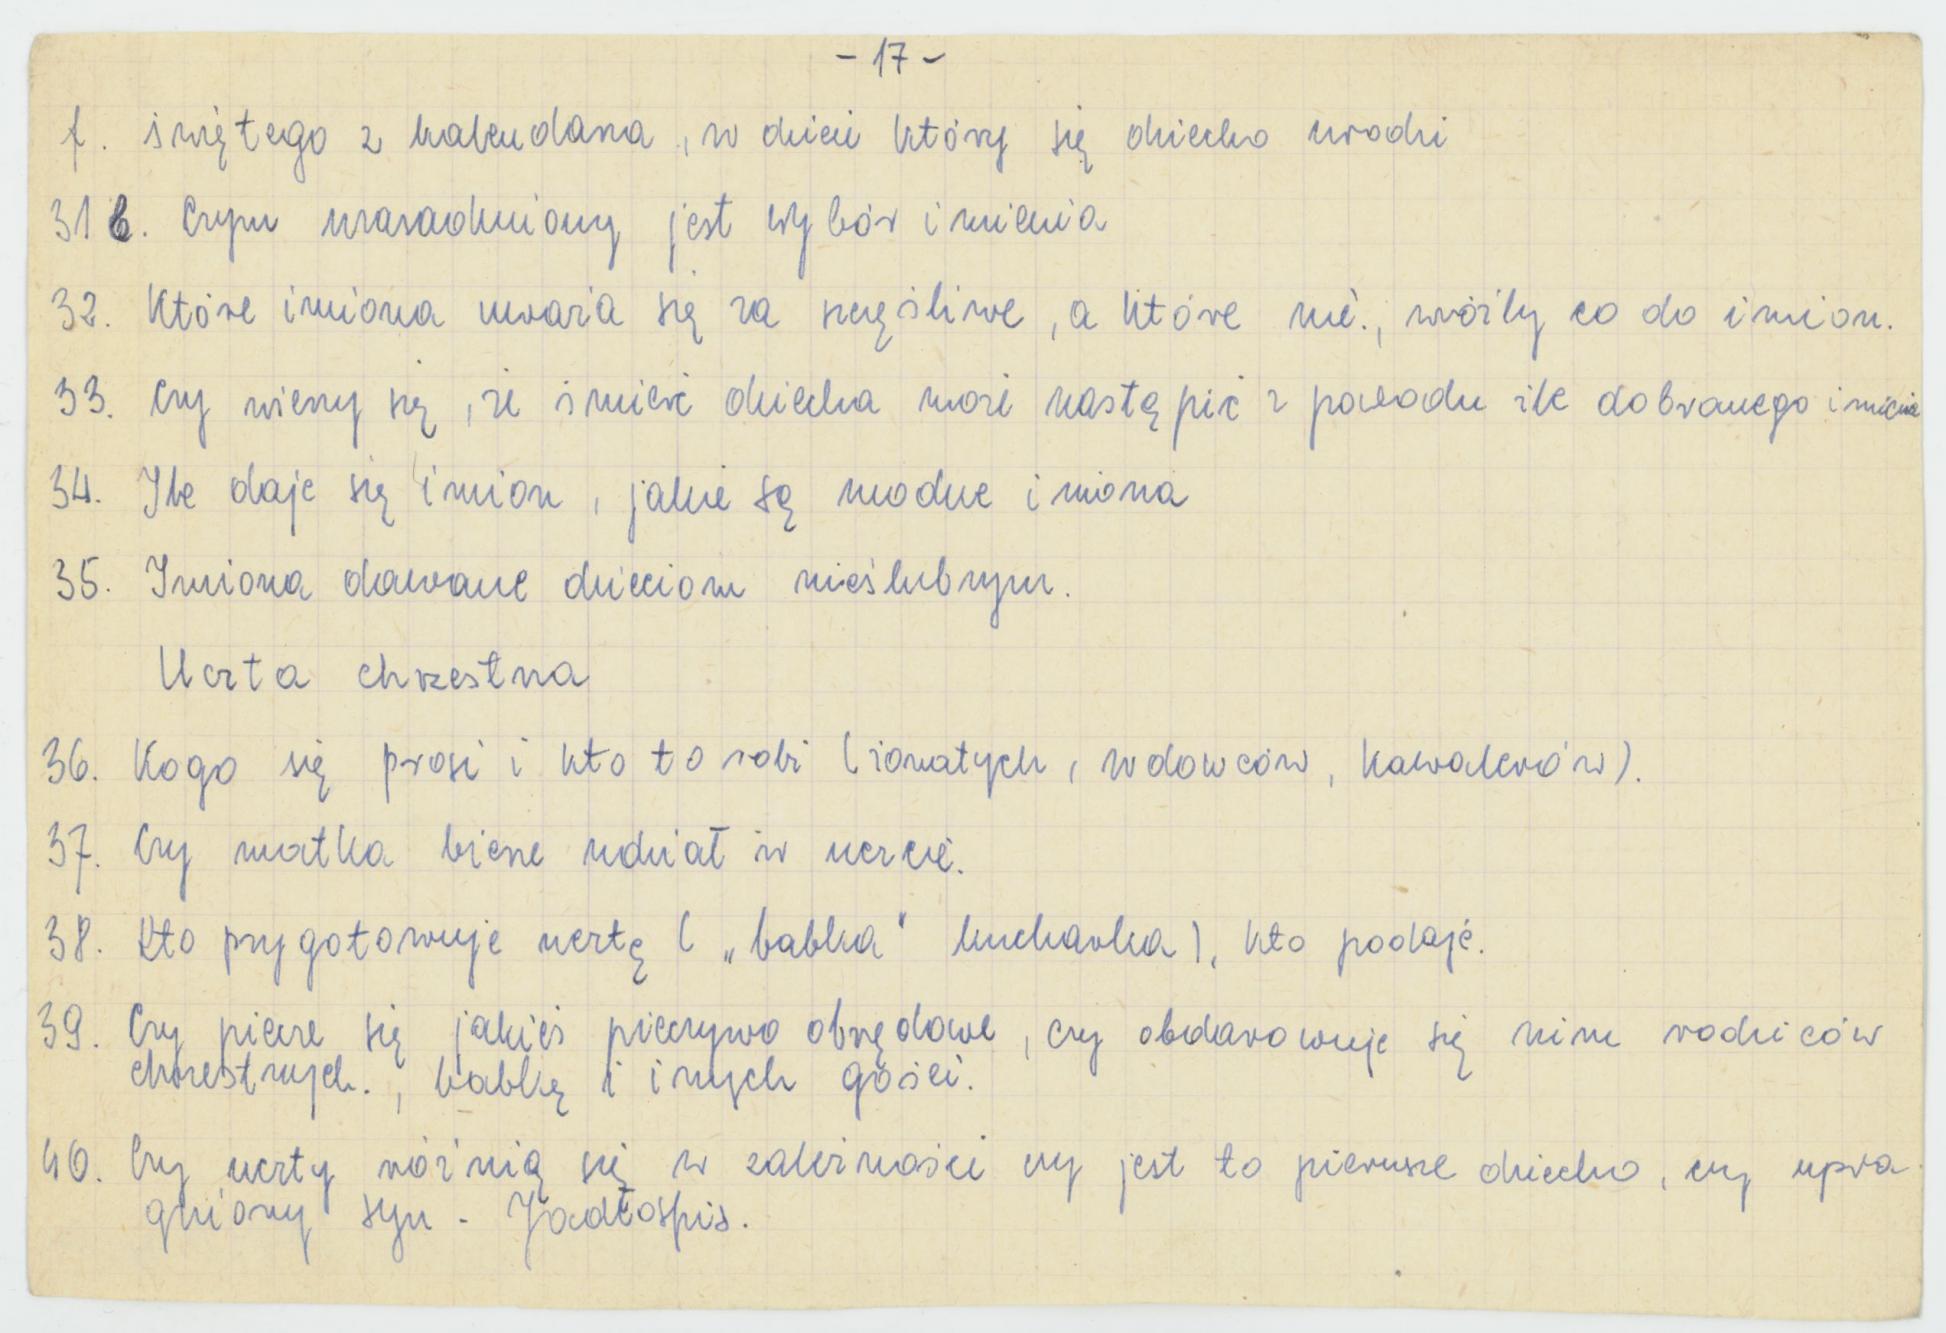 - 17 -
f. świętego z kalendarza, w dzień który się dziecko urodzi
31 b. Czym uzasadniony jest wybór imienia
32. Które imiona uważa się za szczęśliwe, a które nie., wróżby co do imion.
33. Czy wierzy się, że śmierć dziecka może nastąpić z powodu źle dobranego imienia
34. Ile daje się imion, jakie są modne imiona
35. Imiona dawane dzieciom nieślubnym.
Uczta chrzestna
36. Kogo się prosi i kto to robi (żonatych, wdowców, kawalerów).
37. Czy matka bierze udział w uczcie.
38. Kto przygotowuje ucztę ( „babka" kucharka), kto podaje.
39. Czy piecze się jakieś pieczywo obrzędowe, czy obdarowuje się nim rodziców
chrzestnych., babkę i innych gości.
40. Czy uczty różnią się w zależności czy jest to pierwsze dziecko, czy upra
gniony syn - Jadłospis.